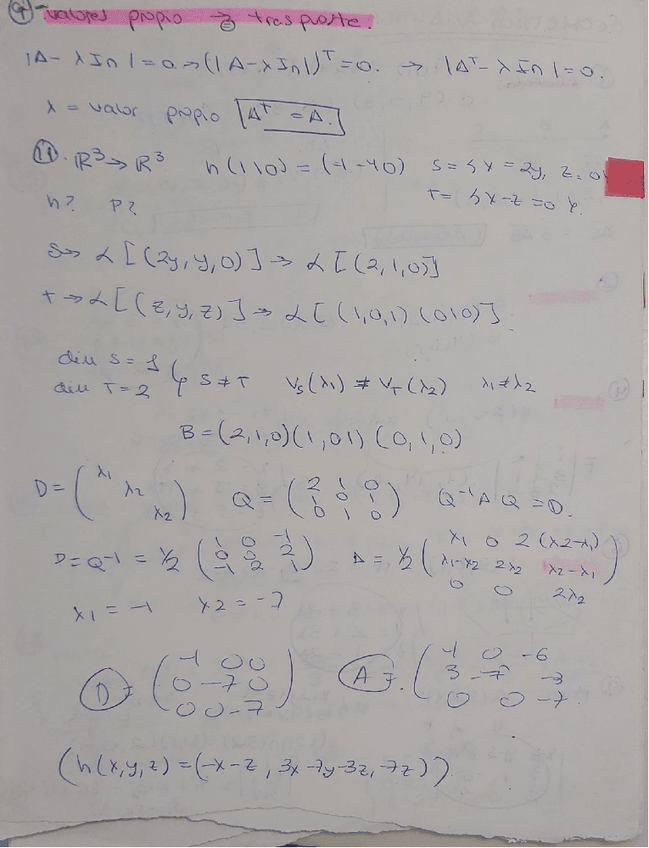 9 valores propio → traspuesta.
|A - λIn| = 0 → (|A - λIn|)ᵀ = 0. → |Aᵀ - λIn| = 0.
λ = valor propio Aᵀ = A.
11. R³ → R³ h(1 1 0) = (-1 -4 0) S = {x = 2y, z = 0}
h? P? T = {x - z = 0}.
S → L[(2y, y, 0)] → L[(2, 1, 0)]
T → L[(z, y, z)] → L[(1, 0, 1) (0 1 0)]
dim S = 1
dim T = 2 S ≠ T V_S(λ1) ≠ V_T(λ2) λ1 ≠ λ2
B = (2, 1, 0) (1, 0 1) (0, 1, 0)
D = (λ1 λ2 λ2) Q = (2 1 0
1 0 1
0 1 0) Q⁻¹ A Q = D.
D = Q⁻¹ = 1/2 (1 0 -1
0 0 2
-1 2 1) A = 1/2 (λ1 0 2(λ2-λ1)
λ1-λ2 2λ2 λ2-λ1
0 0 2λ2)
λ1 = -1 λ2 = -7
D = (-1 0 0
0 -7 0
0 0 -7) A = (-1 0 -6
3 -7 -3
0 0 -7).
(h(x, y, z) = (-x - z, 3x - 7y - 3z, -7z))